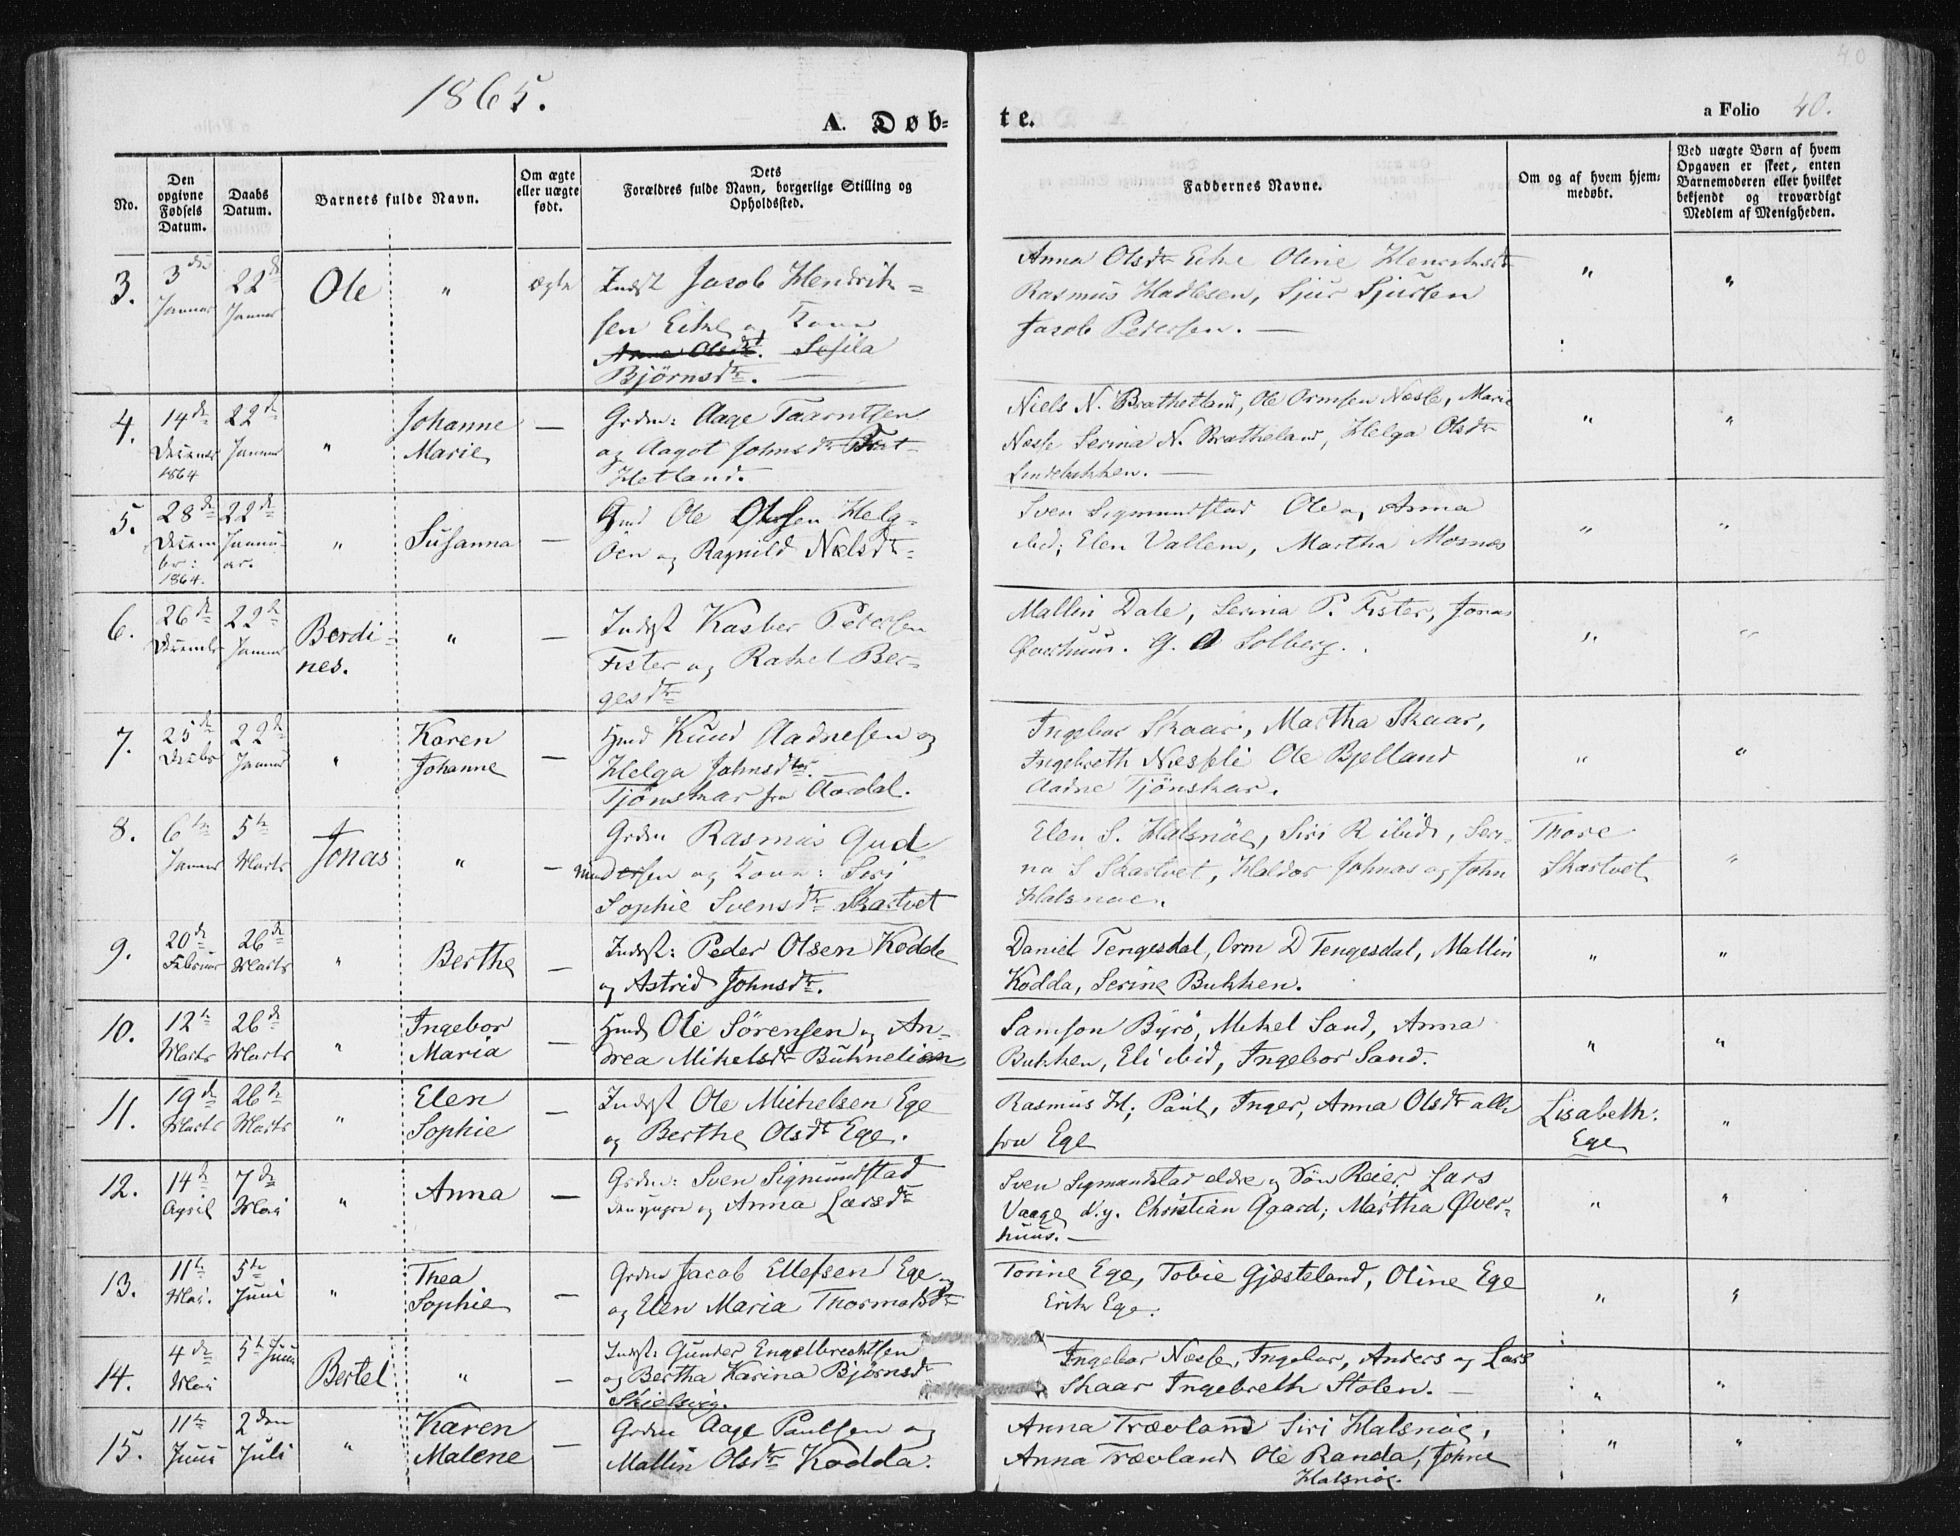 1865.
A. Døb-
te.
a Folio 40.
40
No.
Den opgivne Fødsels Datum.
Daabs Datum.
Barnets fulde Navn.
Om ægte eller uægte født.
Dets Forældres fulde Navn, borgerlige Stilling og Opholdssted.
Faddernes Navne.
Om og af hvem hjem-medøbt.
Ved uægte Børn af hvem Opgaven er skeet, enten Barnemoderen eller hvilket bekjendt og troværdigt Medlem af Menigheden.
3. 3die Januar 22de Januar Ole " ægte
Indst Jacob Hendrik=
sen Eike og Kone
Anna Olsdtr. Sesila
Björnsdtr. —
Anna Olsdtr Eike Oline Henriksdtr
Rasmus Hadlesen, Sjur Sjursen
Jacob Pedersen. —
" "
4. 14de Decemer 1864 22de Januar " Johanne Marie —
Grdm: Aage Taarntsen
og Aagot Johnsdtr
Hetland.
Niels N. Brathetland, Ole Ormsen Nesse, Marie
Nesse Serina N. Bratheland, Helga Olsdtr
Lindebakken. —
" "
5. 28de Decembr: 1864. 22de Januar. " Susanna —
Gmd Ole Olsen Helg-
öen og Ragnild Nælsdtr.
Sven Sigmundstad Ole og Anna
ibid; Elen Vallem, Martha Mosnæs
" "
6. 26de Decembr 22de Januar Berdines. " —
Indst Kasber Pedersen
Fister og Rakel Ber-
gesdtr
Mallin Dale, Serina P. Fister, Jonas
Øverhuus. G. A Solberg.
" "
7. 25de Decbr 22de Januar " Karen Johanne —
Hmd Knud Aadnesen og
Helga Johnsdtr.
Tjönskar fra Aardal.
Ingebor Skaar, Martha Skaar,
Ingebreth Næsseli Ole Bjelland
Aadne Tjönskar.
" "
8. 6te Januar 5te Marts Jonas " —
Grdm Rasmus Gud
mundersen og Kone: Siri
Sophie Svensdtr Skartvet
Elen S. Halsnöe, Siri R ibid, Seri-
na S Skartvet, Haldor Johnas og John
Halsnöe.
Thore Skartvet
"
9. 20de Februar 26de Marts " Berthe —
Indst: Peder Olsen Kodde
og Astrid Johnsdtr.
Daniel Tengesdal, Orm D Tengesdal, Mallin
Kodda, Serine Bukken.
" "
10. 12te Marts 26de Marts " Ingebor Maria —
Hmd Ole Sörensen og An-
drea Mikelsdtr Buhnelien
Samson Byrö, Mikel Sand, Anna
Bukken, Eli ibid, Ingebor Sand.
" "
11. 19de Marts 26te Marts " Elen Sophie —
Indst Ole Michelsen Ege
og Berthe Olsdtr Ege.
Rasmus H; Paul, Inger, Anna Olsdtr alle
fra Ege
Lisabeth: Ege
"
12. 14de April 7de Mai " Anna —
Grdm: Sven Sigmundstad
den yngre og Anna Larsdtr
Sven Sigmundstad eldre og Sön Reier, Lars
Vaage d.y. Christian Gaard; Martha Øver-
huus. —
" "
13. 11te Mai. 5te Juni " Thea Sophie —
Grdm Jacob Ellefsen Ege og
og Elen Maria Thormodsdtr
Torine Ege, Tobie Gjesteland, Oline Ege
Erik Ege.
" "
14. 4de Mai 5te Juni Bertel " —
Indst: Gunder Engelbrechtsen
og Bertha Karina Björnsdtr
Skielsvig.
Ingebor Nesse, Ingebor, Anders og Lars
Skaar Ingebreth Stolen. —
" "
15. 11te Juni 2den Juli " Karen Malene —
Grdm Aage Paulsen og
Mallin Olsdtr Kodda.
Anna Trævland Siri Halsnöe,
Anna Trævland Ole Randa, Johne
Halsnöe.
" "